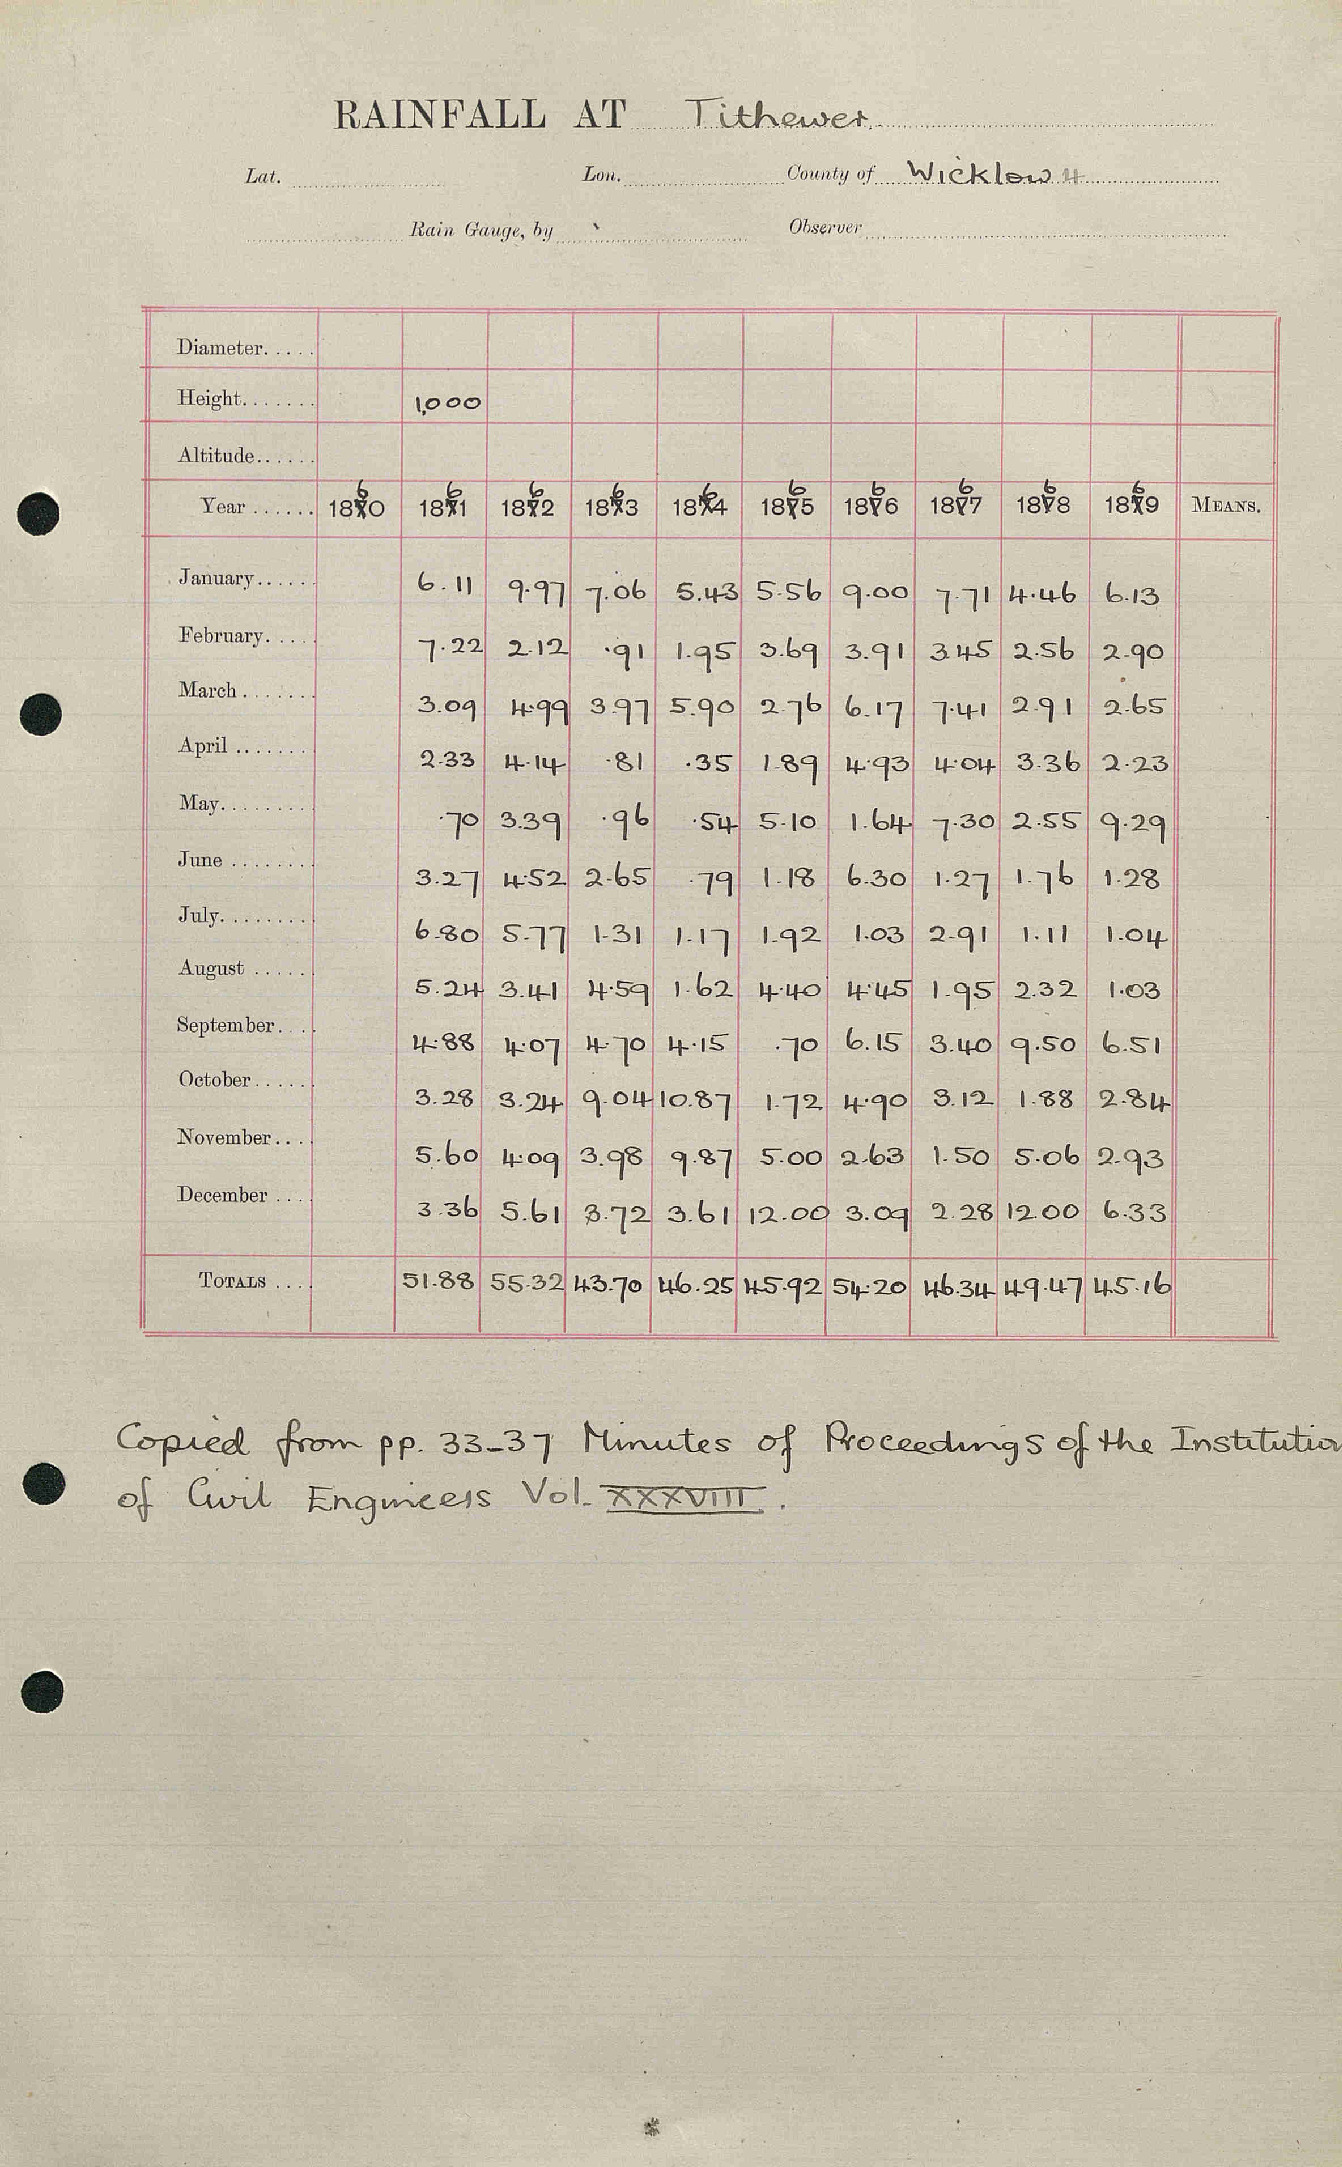 RAINFALL AT Tithewer.
Lat. Lon. County of Wicklow 4
Rain Gauge, by Observer
Diameter.....
Height....... 1,000
Altitude......
Year ...... 1860 1861 1862 1863 1864 1865 1866 1867 1868 1869 MEANS.
January...... 6.11 9.97 7.06 5.43 5.56 9.00 7.71 4.46 6.13
February..... 7.22 2.12 .91 1.95 3.69 3.91 3.45 2.56 2.90
March ....... 3.09 4.99 3.97 5.90 2.76 6.17 7.41 2.91 2.65
April ....... 2.33 4.14 .81 .35 1.89 4.93 4.04 3.36 2.23
May......... .70 3.39 .96 .54 5.10 1.64 7.30 2.55 9.29
June ........ 3.27 4.52 2.65 .79 1.18 6.30 1.27 1.76 1.28
July......... 6.80 5.77 1.31 1.17 1.92 1.03 2.91 1.11 1.04
August ...... 5.24 3.41 4.59 1.62 4.40 4.45 1.95 2.32 1.03
September.... 4.88 4.07 4.70 4.15 .70 6.15 3.40 9.50 6.51
October...... 3.28 3.24 9.04 10.87 1.72 4.90 3.12 1.88 2.84
November.... 5.60 4.09 3.98 9.87 5.00 2.63 1.50 5.06 2.93
December .... 3.36 5.61 3.72 3.61 12.00 3.09 2.28 12.00 6.33
TOTALS .... 51.88 55.32 43.70 46.25 45.92 54.20 46.34 49.47 45.16
Copied from pp. 33-37 Minutes of Proceedings of the Institution
of Civil Engineers Vol. XXXVIII.